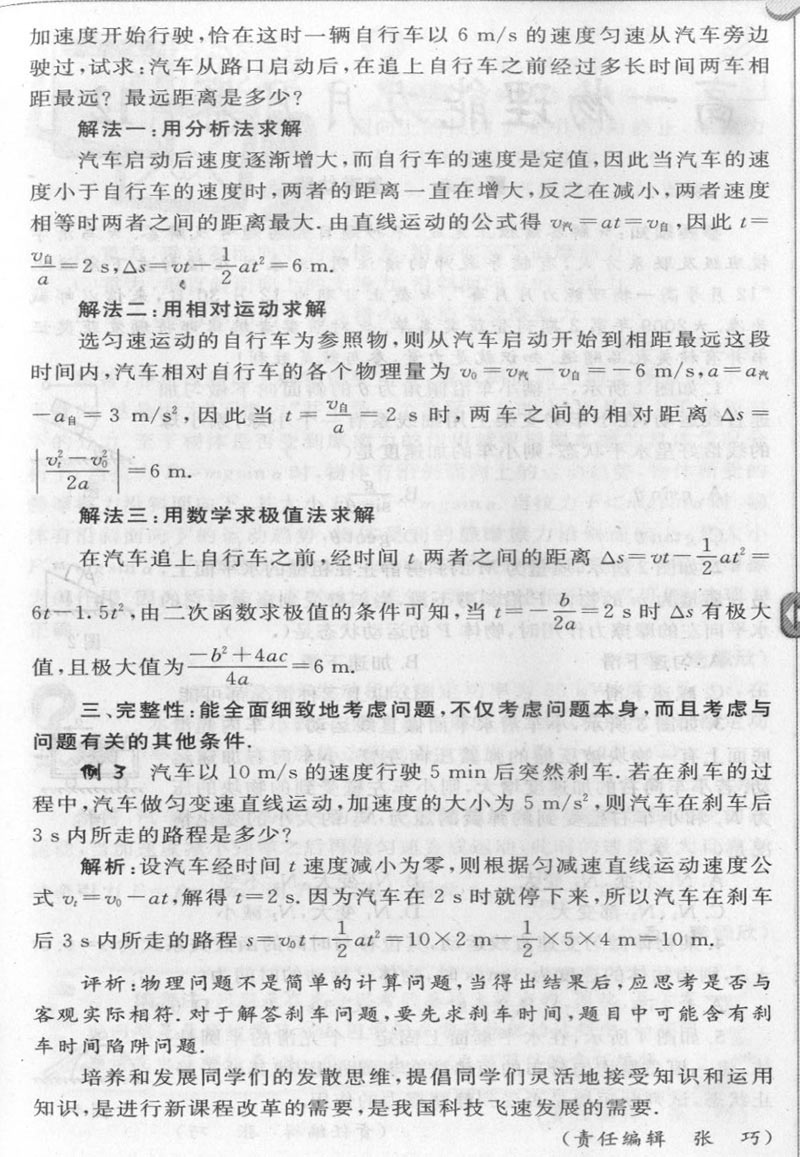 加速度开始行驶,恰在这时一辆自行车以 6 m/s 的速度匀速从汽车旁边
驶过,试求:汽车从路口启动后,在追上自行车之前经过多长时间两车相
距最远? 最远距离是多少?
解法一:用分析法求解
汽车启动后速度逐渐增大,而自行车的速度是定值,因此当汽车的速
度小于自行车的速度时,两者的距离一直在增大,反之在减小,两者速度
相等时两者之间的距离最大. 由直线运动的公式得 v汽=at=v自,因此 t=
v自/a=2 s,Δs=vt-1/2at²=6 m.
解法二:用相对运动求解
选匀速运动的自行车为参照物,则从汽车启动开始到相距最远这段
时间内,汽车相对自行车的各个物理量为 v₀=v汽-v自=-6 m/s,a=a汽
-a自=3 m/s²,因此当 t=v自/a=2 s 时,两车之间的相对距离 Δs=
|(vₜ²-v₀²)/2a|=6 m.
解法三:用数学求极值法求解
在汽车追上自行车之前,经时间 t 两者之间的距离 Δs=vt-1/2at²=
6t-1.5t²,由二次函数求极值的条件可知,当 t=-b/2a=2 s 时 Δs 有极大
值,且极大值为(-b²+4ac)/4a=6 m.
三、完整性:能全面细致地考虑问题,不仅考虑问题本身,而且考虑与
问题有关的其他条件.
例 3 汽车以 10 m/s 的速度行驶 5 min 后突然刹车. 若在刹车的过
程中,汽车做匀变速直线运动,加速度的大小为 5 m/s²,则汽车在刹车后
3 s 内所走的路程是多少?
解析:设汽车经时间 t 速度减小为零,则根据匀减速直线运动速度公
式 vₜ=v₀-at,解得 t=2 s. 因为汽车在 2 s 时就停下来,所以汽车在刹车
后 3 s 内所走的路程 s=v₀t-1/2at²=10×2 m-1/2×5×4 m=10 m.
评析:物理问题不是简单的计算问题,当得出结果后,应思考是否与
客观实际相符. 对于解答刹车问题,要先求刹车时间,题目中可能含有刹
车时间陷阱问题
培养和发展同学们的发散思维,提倡同学们灵活地接受知识和运用
知识,是进行新课程改革的需要,是我国科技飞速发展的需要.
(责任编辑 张 巧)